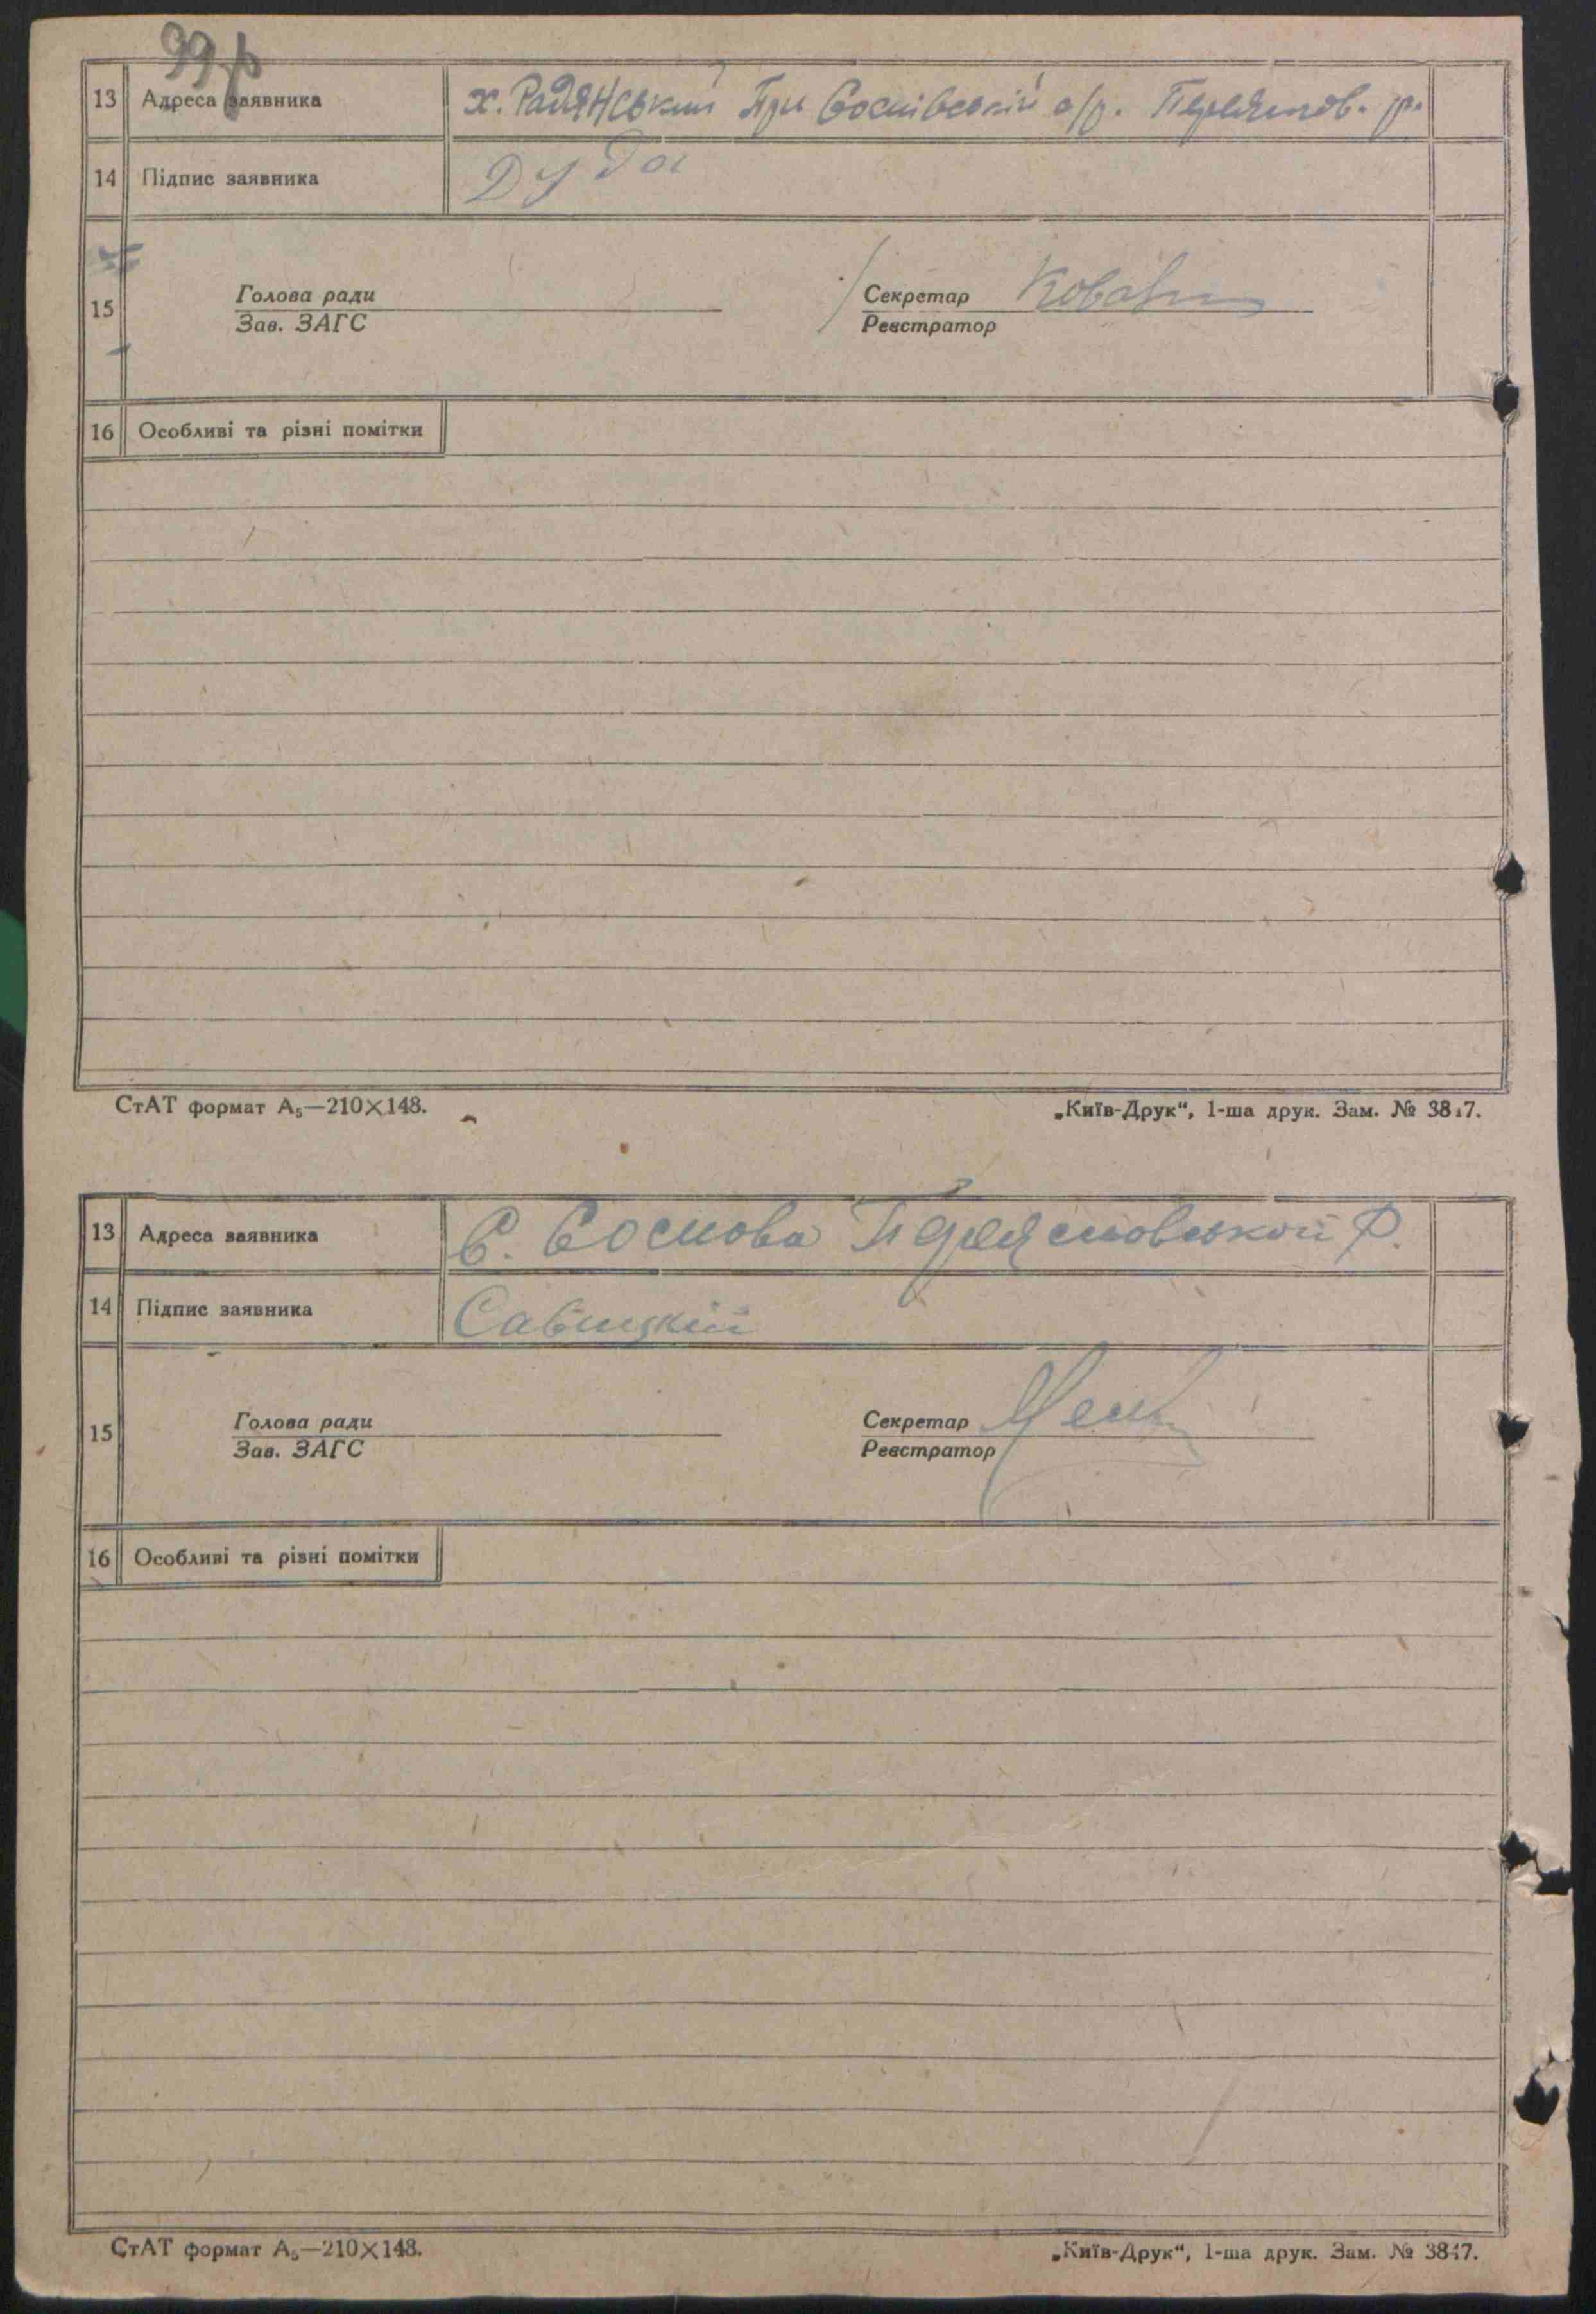 13 Адреса заявника х. Радянський при Соснівській с/р. Переяслов. р.
14 Підпис заявника Дуда
15 Голова ради Секретар
Зав. ЗАГС Реєстратор
16 Особливі та різні помітки
СтАТ формат А₅—210×148. „Київ-Друк“, 1-ша друк. Зам. №
13 Адреса заявника С. Соснова Переясловської Р.
14 Підпис заявника Савицкій
15 Голова ради Секретар
Зав. ЗАГС Реєстратор
16 Особливі та різні помітки
СтАТ формат А₅—210×148. „Київ-Друк“, 1-ша друк. Зам. №